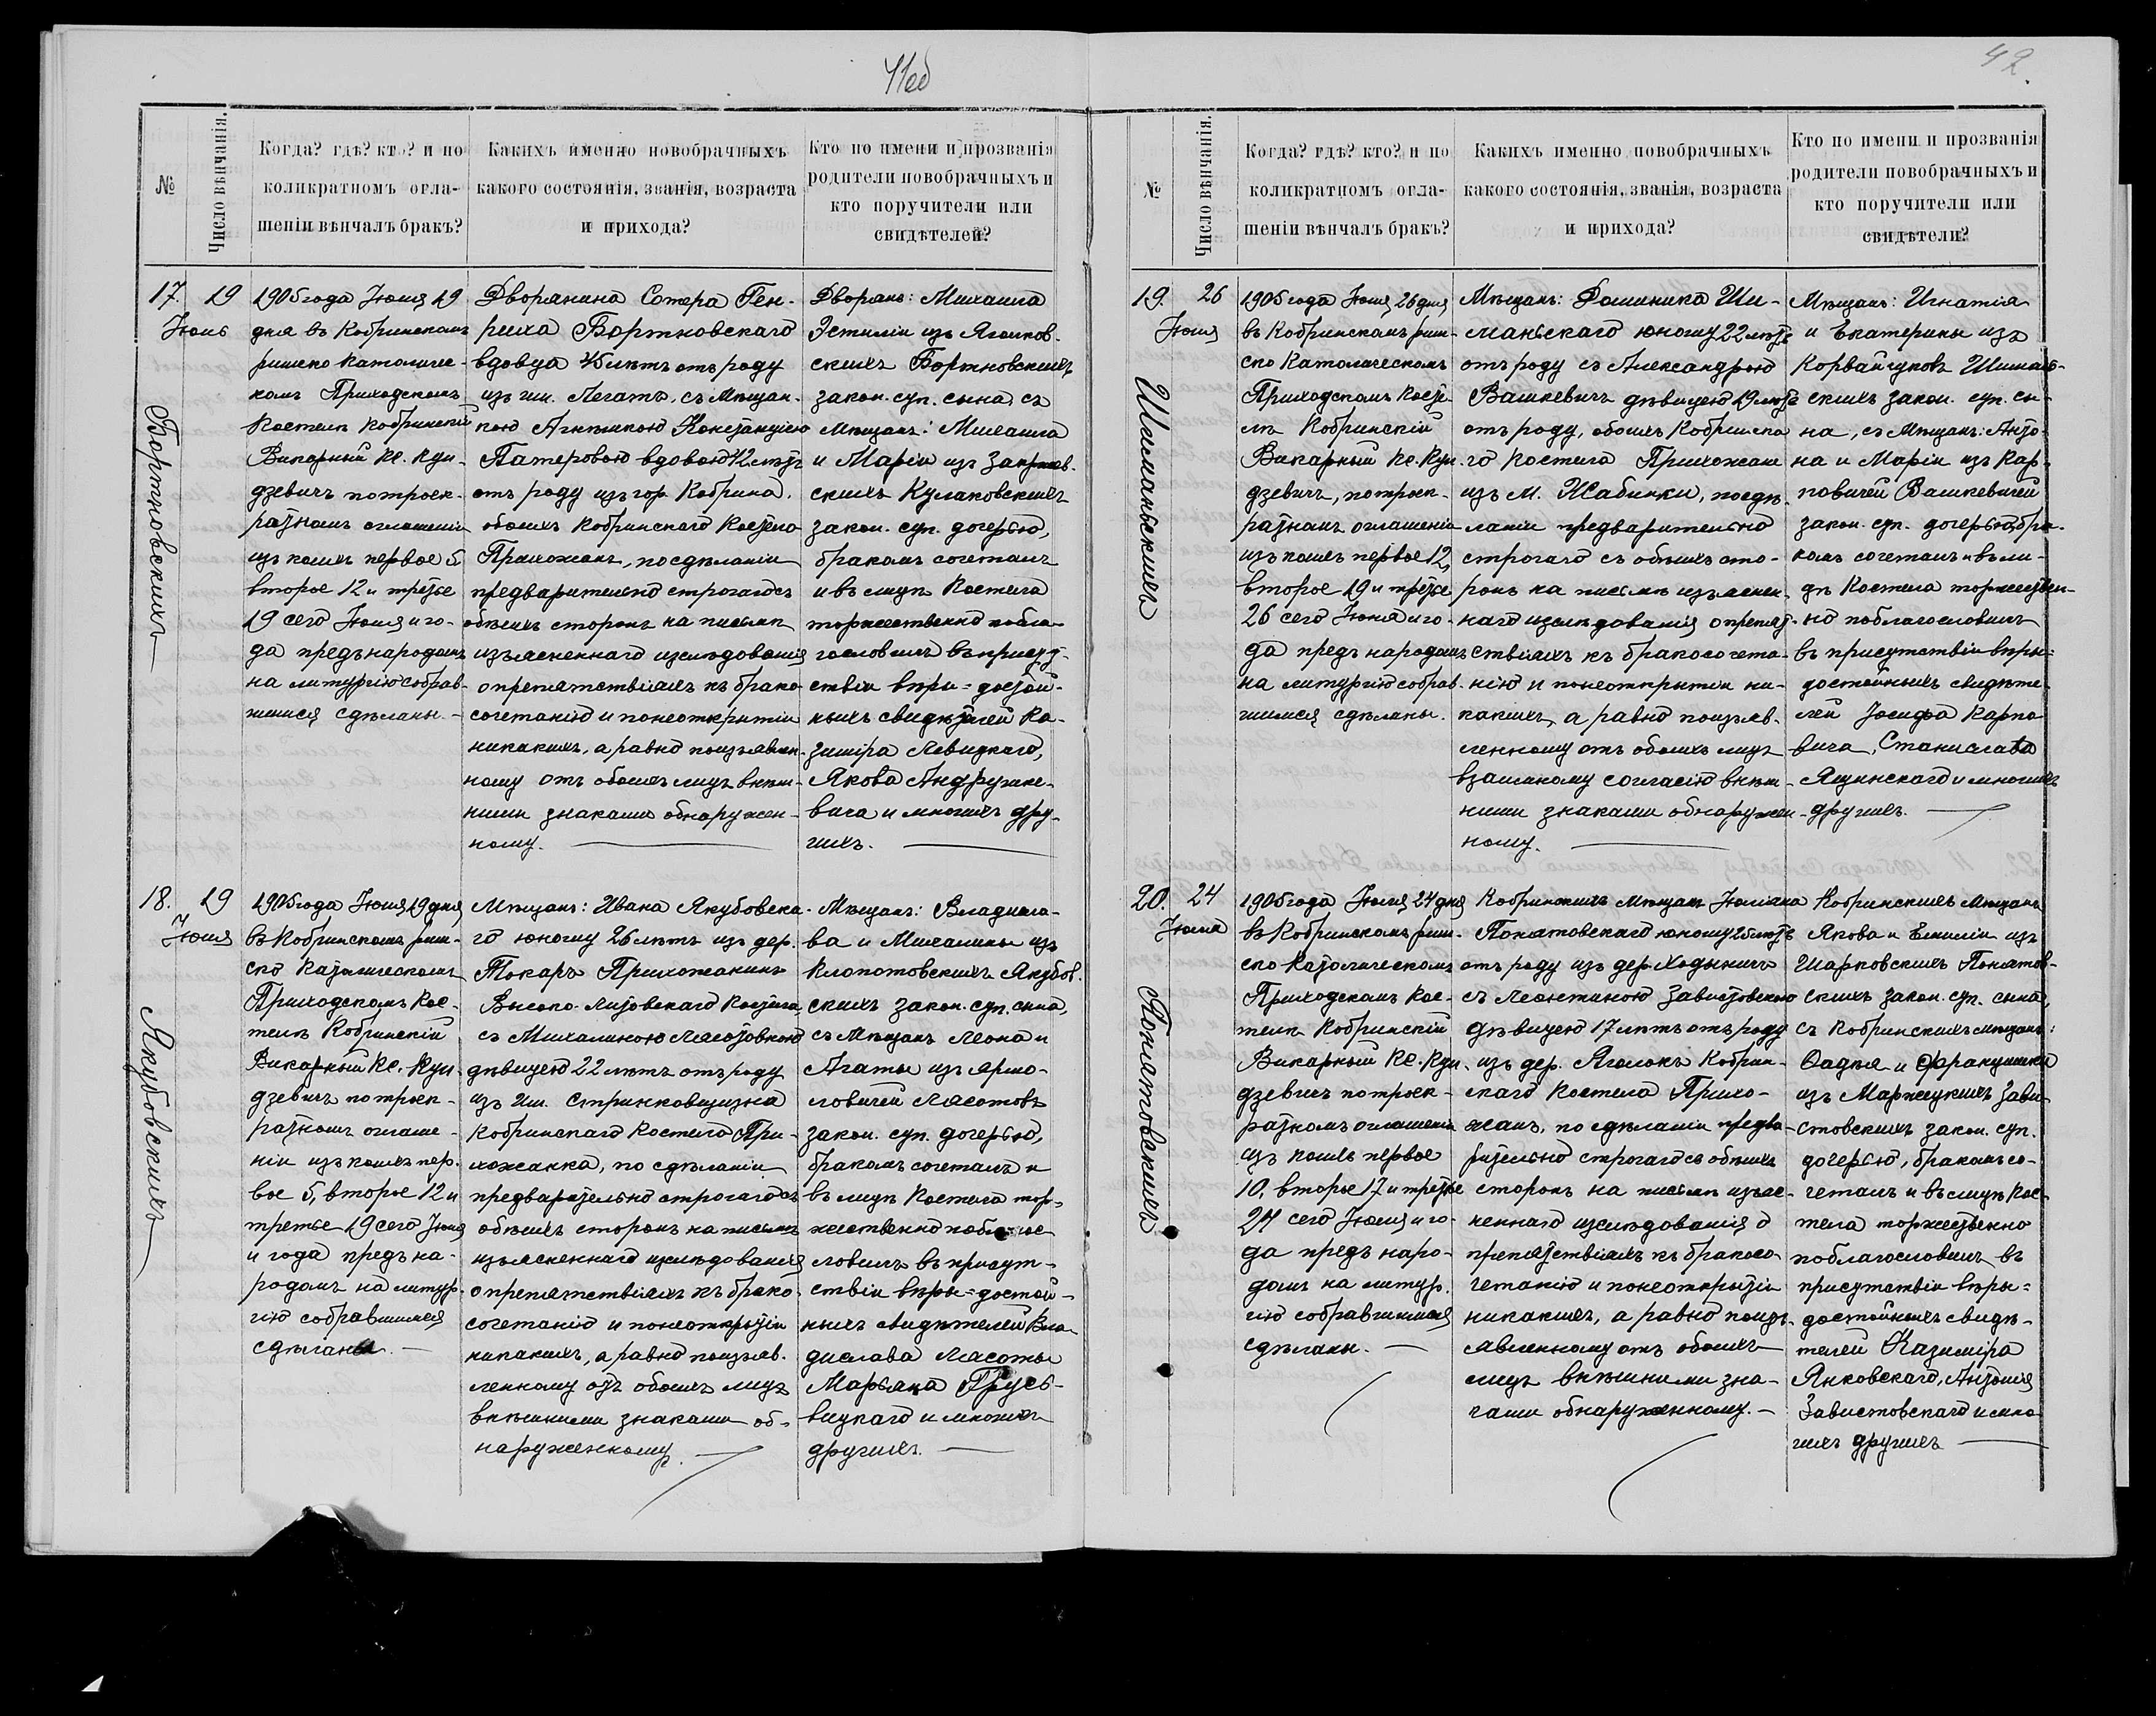 41об
№
Число вѣнчанія.
Когда? гдѣ? кто? и по
коликратномъ огла-
шеніи вѣнчалъ бракъ?
Какихъ именно новобрачныхъ
какого состоянія, званія, возраста
и прихода?
Кто по имени и прозванія
родители новобрачныхъ и
кто поручители или
свидѣтелей?
17.
19
Іюнь
Бортновскихъ
1905 года Іюня 19
дня въ Кобринскомъ
римско католиче-
комъ Приходскомъ
Костелѣ Кобринскій
Викарный Кс. Кун-
дзевичъ по троек-
ратномъ оглашеніи
изъ коихъ первое 5
второе 12 и третье
19 сего Іюня и го-
да предъ народомъ
на литургію собрав-
шимся сдѣланы. -
Дворянина Сотера Ген-
риха Бортновскаго
вдовца 45 лѣтъ отъ роду
изъ им. Легаты, съ Мѣщан-
кою Агнѣшкою Констанціею
Патеровою вдовою 42 лѣтъ
отъ роду изъ гор. Кобрина,
обоихъ Кобринскаго Костела
Прихожанъ, по сдѣланіи
предварительно строгаго съ
обѣихъ сторонъ на письмѣ
изъясненнаго изслѣдованія
о препятствіяхъ къ брако-
сочетанію и по неоткрытіи
никакихъ, а равно по изъявлен-
ному отъ обоихъ лицъ внѣш-
ними знаками обнаружен-
ному.
Дворянъ: Михаила
Эстиліи изъ Ягминов-
скихъ Бортновскихъ
закон. суп. сына, съ
Мѣщанъ: Михаила
и Маріи изъ Закржев-
скихъ Кулаковскихъ
закон. суп. дочерью,
бракомъ сочеталъ
и въ лицѣ Костела
торжественно побла-
гословилъ въ присут-
ствіи вѣри=достой-
ныхъ свидѣтелей Ка-
зиміра Левицкаго,
Якова Андрушке-
вича и многихъ дру-
гихъ.
18.
19
Іюня
Якубовскихъ
1905 года Іюня 19 дня
въ Кобринскомъ рим-
ско Католическомъ
Приходскомъ Кос-
телѣ Кобринскій
Викарный Кс. Кун-
дзевичъ по троек-
ратномъ оглаше-
ніи изъ коихъ пер-
вое 5, второе 12 и
третье 19 сего Іюня
и года предъ на-
родомъ на литур-
гію собравшимся
сдѣланы. -
Мѣщанъ: Ивана Якубовска-
го юношу 26 лѣтъ изъ дер.
Токаръ Прихожанинъ
Высоко-Литовскаго Костела
съ Михалиною Ласотовною
дѣвицею 22 лѣтъ отъ роду
изъ им. Стринковщизна
Кобринскаго Костела При-
хожанка, по сдѣланіи
предварительно строгаго съ
обѣихъ сторонъ на письмѣ
изъясненнаго изслѣдованія
о препятствіяхъ къ брако-
сочетанію и по неоткрытіи
никакихъ, а равно по изъяв-
ленному отъ обоихъ лицъ
внѣшними знаками об-
наруженному.
Мѣщанъ: Владисла-
ва и Михалины изъ
Клопотовскихъ Якубов-
скихъ закон. суп. сына,
съ Мѣщанъ Леона и
Агаты изъ Ярмо-
ловичей Ласотовъ
закон. суп. дочерью,
бракомъ сочеталъ и
въ лицѣ Костела тор-
жественно поблагос-
ловилъ въ присут-
ствіи вѣры=достой-
ныхъ свидѣтелей Вла-
дислава Ласоты
Марьяна Грусь-
вицкаго и многихъ
другихъ.
42.
№
Число вѣнчанія.
Когда? гдѣ? кто? и по
коликратномъ огла-
шеніи вѣнчалъ бракъ?
Какихъ именно новобрачныхъ
какого состоянія, званія, возраста
и прихода?
Кто по имени и прозванія
родители новобрачныхъ и
кто поручители или
свидѣтели?
19.
26
Іюня
Шиманьскихъ
1905 года Іюня 26 дня
въ Кобринскомъ рим-
ско Католическомъ
Приходскомъ Косте-
лѣ Кобринскій
Викарный Кс. Кун-
дзевичъ, по троек-
ратномъ оглашеніи
изъ коихъ первое 12,
второе 19 и третье
26 сего Іюня и го-
да предъ народомъ
на литургію собрав-
шимся сдѣланы.
Мѣщанъ: Доминика Ши-
маньскаго юношу 22 лѣтъ
отъ роду съ Александрою
Вашкевичъ дѣвицею 19 лѣтъ
отъ роду, обоихъ Кобринска-
го Костела Прихожане
изъ М. Жабинки, по сдѣ-
ланіи предварительно
строгаго съ обѣихъ сто-
ронъ на письмѣ изъяснен-
наго изслѣдованія о препят-
ствіяхъ къ бракосочета-
нію и по неоткрытіи ни-
какихъ, а равно по изъяв-
ленному отъ обоихъ лицъ
взаимному согласію внѣш-
ними знаками обнаружен-
ному.
Мѣщанъ: Игнатія
и Екатерины изъ
Корвайчуковъ Шимань-
скихъ закон. суп. сы-
на, съ Мѣщанъ: Анто-
на и Маріи изъ Кар-
повичей Вашкевичей
закон. суп. дочерью, бра-
комъ сочеталъ и въ ли-
цѣ Костела торжествен-
но поблагословилъ
въ присутствіи вѣры=
достойныхъ свидѣте-
лей Іосифа Карпо-
вича, Станислава
Ящинскаго и многихъ
другихъ.
20.
24
Іюля
Понятовскихъ
1905 года Іюля 24 дня
въ Кобринскомъ рим-
ско Католическомъ
Приходскомъ Кос-
телѣ Кобринскій
Викарный Кс. Кун-
дзевичъ по троек-
ратномъ оглашеніи
изъ коихъ первое
10, второе 17 и третье
24 сего Іюля и го-
да предъ наро-
домъ на литур-
гію собравшимся
сдѣланы. -
Кобринскихъ мѣщанъ Юліана
Понятовскаго юношу 25 лѣтъ
отъ роду изъ дер. Ходыничъ
съ Леонтиною Завистовскою
дѣвицею 17 лѣтъ отъ роду
изъ дер. Яголокъ Кобрин-
скаго Костела Прихо-
жанъ, по сдѣланіи предва-
рительно строгаго съ обѣихъ
сторонъ на письмѣ изъяс-
неннаго изслѣдованія о
препятствіяхъ къ бракосо-
четанію и по неоткрытіи
никакихъ, а равно по изъ-
явленному отъ обоихъ
лицъ внѣшними зна-
ками обнаруженному. -
Кобринскихъ мѣщанъ
Якова и Емиліи изъ
Шарковскихъ Понятов-
скихъ закон. суп. сына,
съ Кобринскихъ мѣщанъ:
Фадѣя и Францишки
изъ Маржецкихъ Зави-
стовскихъ закон. суп.
дочерью, бракомъ со-
четалъ и въ лицѣ Кос-
тела торжественно
поблагословилъ въ
присутствіи вѣры=
достойныхъ свидѣ-
телей Казиміра
Янковскаго, Антонія
Завистовскаго и мно-
гихъ другихъ